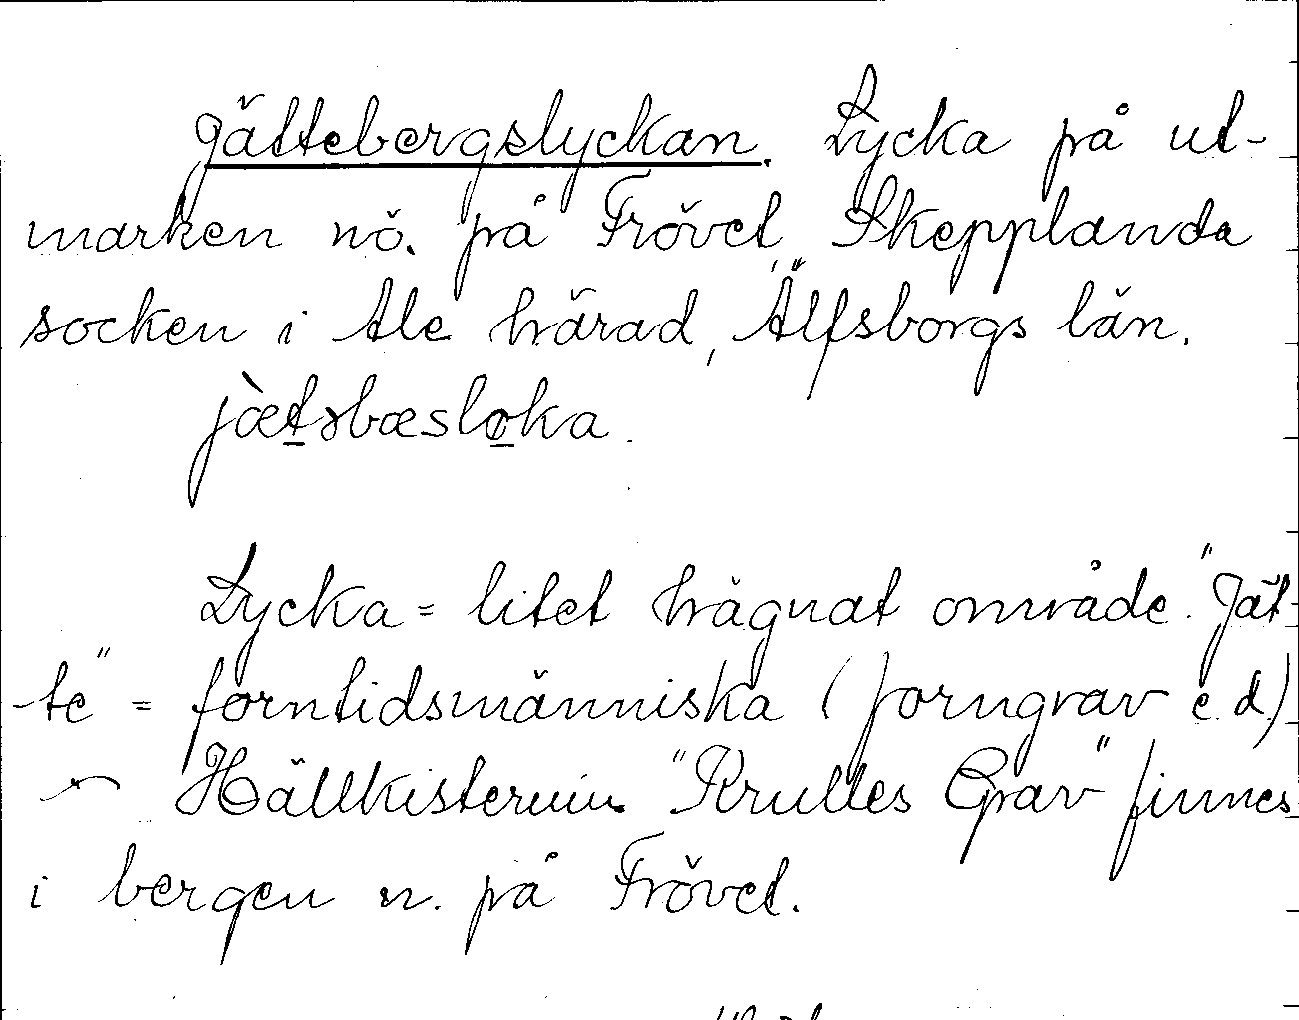 Jättebergslyckan. Lycka på ut-
marken nö. på Frövet, Skepplanda
socken i Ale härad, Älfsborgs län.
jætəbæsloka.
Lycka = litet hägnat område. "Jät-
te" = forntidsmänniska (forngrav e d)
~ Hällkisteruin "Krulles Grav" finnes
i bergen n. på Frövet.